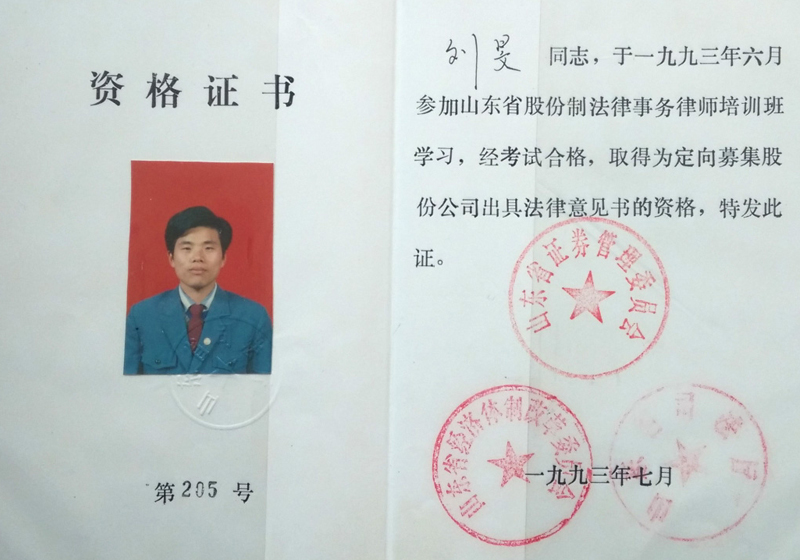 资格证书
第205号
刘旻 同志，于一九九三年六月
参加山东省股份制法律事务律师培训班
学习，经考试合格，取得为定向募集股
份公司出具法律意见书的资格，特发此
证。
山东省证券管理委员会
山东省经济体制改革委员会
一九九三年七月